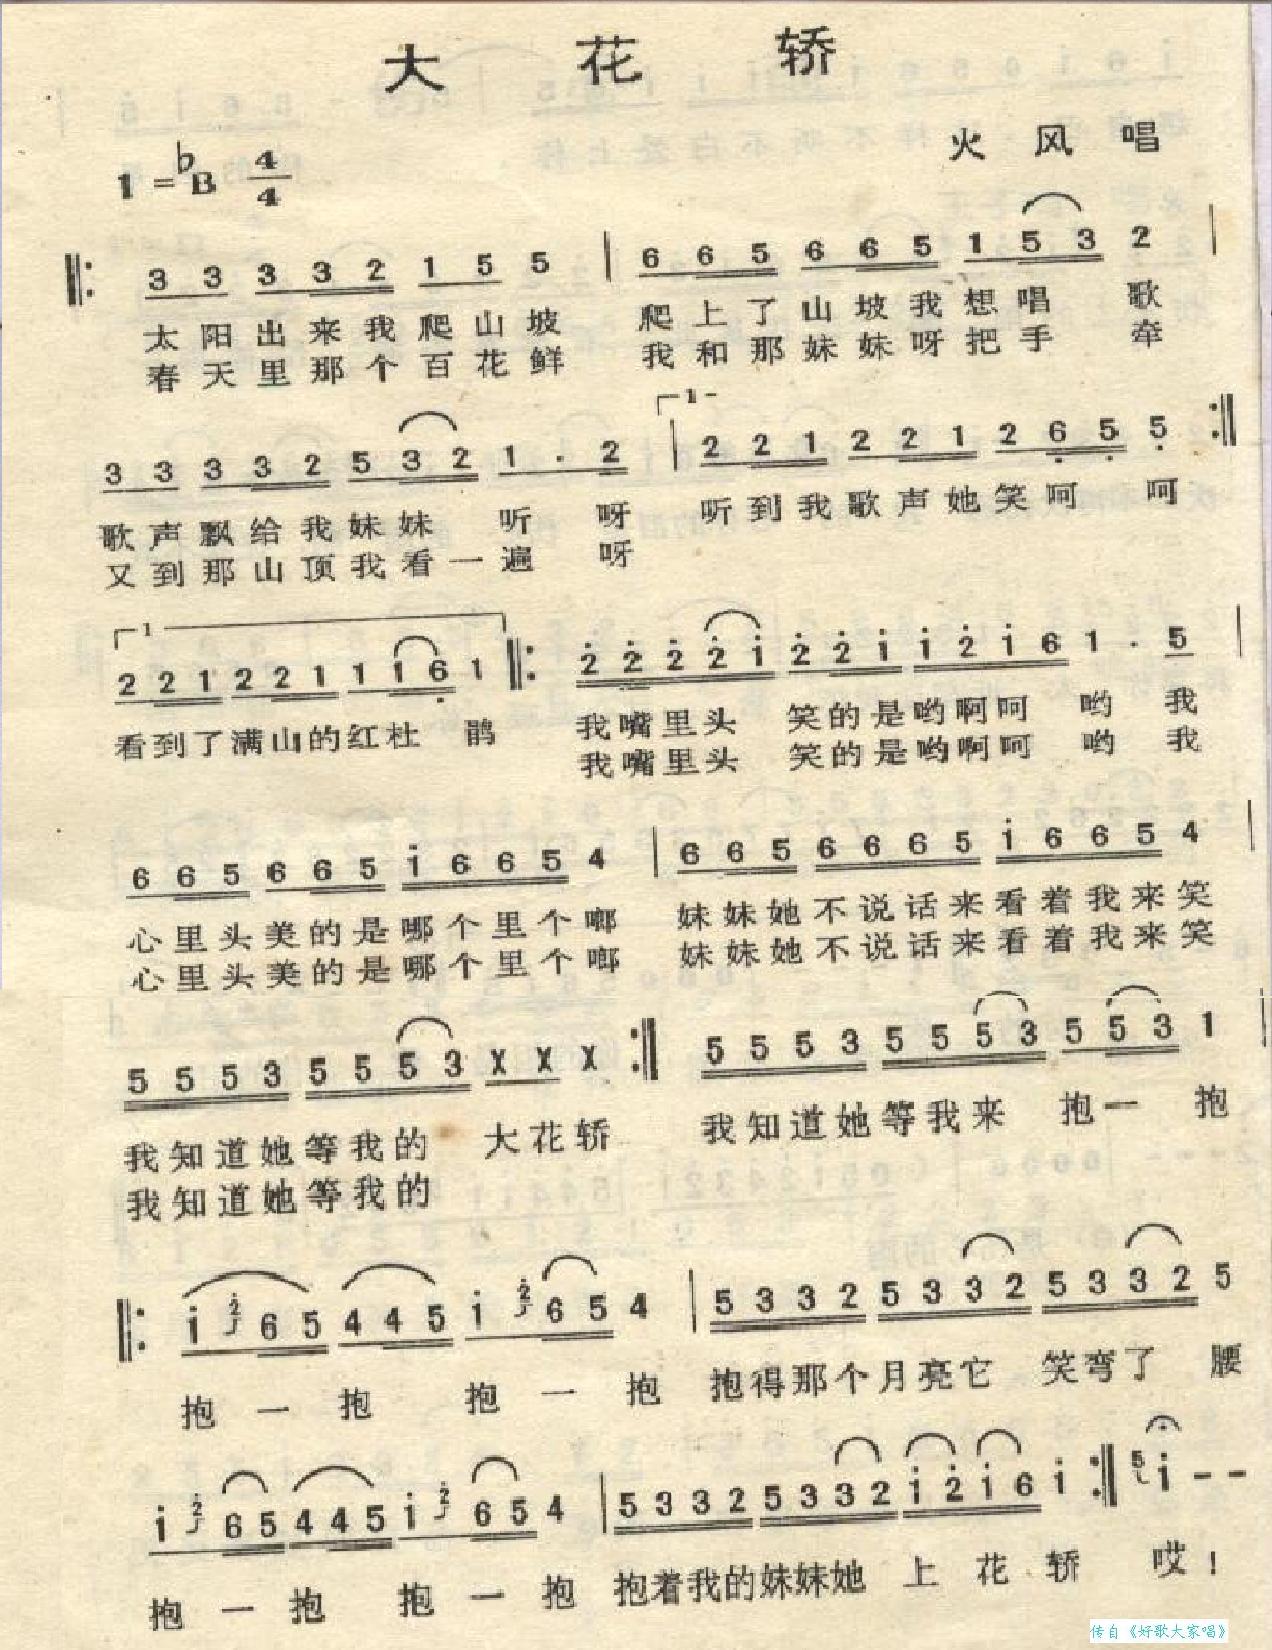 大花轿
火风唱
1=♭B 4/4
3 3 3 3 2 1 5 5 | 6 6 5 6 6 5 1 5 3 2 |
太阳出来我爬山坡 爬上了山坡我想唱 歌
春天里那个百花鲜 我和那妹妹呀把手 牵
1-
3 3 3 3 2 5 3 2 1 . 2 | 2 2 1 2 2 1 2 6 5 5 :||
歌声飘给我妹妹 听 呀 听到我歌声她笑呵 呵
又到那山顶我看一遍 呀
1
2 2 1 2 2 1 1 1 6 1 ||: 2 2 2 2 1 2 2 1 1 2 1 6 1 . 5 |
看到了满山的红杜 鹃 我嘴里头 笑的是哟啊呵 哟 我
我嘴里头 笑的是哟啊呵 哟 我
6 6 5 6 6 5 1 6 6 5 4 | 6 6 5 6 6 6 5 1 6 6 5 4 |
心里头美的是哪个里个啷 妹妹她不说话来看着我来笑
心里头美的是哪个里个啷 妹妹她不说话来看着我来笑
5 5 5 3 5 5 5 3 X X X :|| 5 5 5 3 5 5 5 3 5 5 3 1 |
我知道她等我的 大花轿 我知道她等我来 抱一 抱
我知道她等我的
||: 1 2 6 5 4 4 5 1 2 6 5 4 | 5 3 3 2 5 3 3 2 5 3 3 2 5
抱 一 抱 抱 一 抱 抱得那个月亮它 笑弯了 腰
1 2 6 5 4 4 5 1 2 6 5 4 | 5 3 3 2 5 3 3 2 1 2 1 6 1 :|| 5 1 - -
抱 一 抱 抱 一 抱 抱着我的妹妹她 上 花 轿 哎!
传自《好歌大家唱》